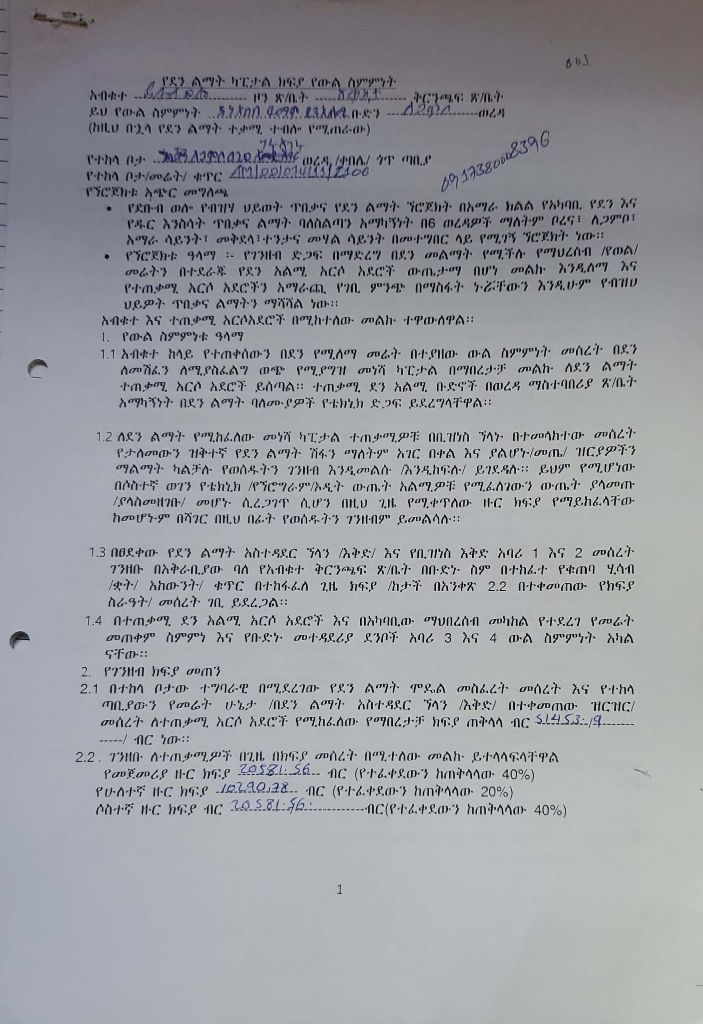 001
የደን ልማት ካፒታል ክፍያ የውል ስምምነት
አብቁተ ዞን ጽ/ቤት ቅርንጫፍ ጽ/ቤት
ይህ የውል ስምምነት ቡድን ወረዳ
(ከዚህ በኋላ የደን ልማት ተቃሚ ተብሎ የሚጠራው)
የተከላ ቦታ ወረዳ /ቀበሌ/ ጎጥ ጣቢያ
የተከላ ቦታ/መሬት/ ቁጥር
የፕሮጀክቱ አጭር መግለጫ
• የደቡብ ወሎ የብዝሃ ህይወት ጥበቃና የደን ልማት ፕሮጀክት በአማራ ክልል የአካባቢ የደን እና
የዱር እንስሳት ጥበቃና ልማት ባለስልጣን አማካኝነት በ6 ወረዳዎች ማለትም ቦረና፣ ሌጋምቦ፣
አማራ ሳይንት፣ መቅደላ፣ተንታና መሃል ሳይንት በመተግበር ላይ የሚገኝ ፕሮጀክት ነው።
• የፕሮጀክቱ ዓላማ ፡- የገንዘብ ድጋፍ በማድረግ በደን መልማት የሚችሉ የማህረሰብ /የወል/
መሬትን በተደራጁ የደን አልሚ አርሶ አደሮች ውጤታማ በሆነ መልኩ እንዲለማ እና
የተቃሚ አርሶ አደሮችን አማራጪ የገቢ ምንጭ በማስፋት ኑሯቸውን እንዲሁም የብዝሀ
ህይዎት ጥበቃና ልማትን ማሻሻል ነው።
አብቁተ እና ተጠቃሚ አርሶአደሮች በሚከተለው መልኩ ተዋውለዋል።
1. የውል ስምምነቱ ዓላማ
1.1 አብቁተ ከላይ የተጠቀሰውን በደን የሚለማ መሬት በተያዘው ውል ስምምነት መሰረት በደን
ለመሸፈን ለሚያስፈልግ ወጭ የሚያግዝ መነሻ ካፒታል በማበረታቻ መልኩ ለደን ልማት
ተጠቃሚ አርሶ አደሮች ይሰጣል። ተጠቃሚ ደን አልሚ ቡድኖች በወረዳ ማስተባበሪያ ጽ/ቤት
አማካኝነት በደን ልማት ባለሙያዎች የቴክኒክ ድጋፍ ይደረግላቸዋል።
1.2 ለደን ልማት የሚከፈለው መነሻ ካፒታል ተጠቃሚዎቹ በቢዝነስ ፕላኑ በተመላከተው መሰረት
የታለመውን ዝቅተኛ የደን ልማት ሽፋን ማለትም አገር በቀል እና ያልሆኑ/መጤ/ ዝርያዎችን
ማልማት ካልቻሉ የወሰዱትን ገንዘብ እንዲመልሱ /እንዲከፍሉ/ ይገደዳሉ። ይህም የሚሆነው
በሶስተኛ ወገን የቴክኒክ /የፕሮግራም/ኦዲት ውጤት አልሚዎቹ የሚፈለገውን ውጤት ያላመጡ
/ያላስመዘገቡ/ መሆኑ ሲረጋገጥ ሲሆን በዚህ ጊዜ የሚቀጥለው ዙር ክፍያ የማይከፈላቸው
ከመሆኑም በሻገር በዚህ በፊት የወሰዱትን ገንዘብም ይመልሳሉ።
1.3 በፀደቀው የደን ልማት አስተዳደር ፕላን /እቅድ/ እና የቢዝነስ እቅድ አባሪ 1 እና 2 መሰረት
ገንዘቡ በአቅራቢያው ባለ የአብቁተ ቅርንጫፍ ጽ/ቤት በቡድኑ ስም በተከፈተ የቁጠባ ሂሳብ
/ቋት/ አከውንት/ ቁጥር በተከፋፈለ ጊዜ ክፍያ /ከታች በአንቀጽ 2.2 በተቀመጠው የክፍያ
ስራዓት/ መሰረት ገቢ ይደረጋል።
1.4 በተጠቃሚ ደን አልሚ አርሶ አደሮች እና በአካባቢው ማህበረሰብ መካከል የተደረገ የመሬት
መጠቀም ስምምነ እና የቡድኑ መተዳደሪያ ደንቦች አባሪ 3 እና 4 ውል ስምምነት አካል
ናቸው።
2. የገንዘብ ክፍያ መጠን
2.1 በተከላ ቦታው ተግባራዊ በሚደረገው የደን ልማት ሞዴል መስፈረት መሰረት እና የተከላ
ጣቢያውን የመሬት ሁኔታ /በደን ልማት አስተዳደር ፕላን /እቅድ/ በተቀመጠው ዝርዝር/
መሰረት ለተጠቃሚ አርሶ አደሮች የሚከፈለው የማበረታቻ ክፍያ ጠቅላላ ብር 51453.9
-----/ ብር ነው።
2.2. ገንዘቡ ለተጠቃሚዎች በጊዜ በክፍያ መሰረት በሚተለው መልኩ ይተላለፍላቸዋል
የመጀመሪያ ዙር ክፍያ 20581.56 ብር (የተፈቀደውን ከጠቅላላው 40%)
የሁለተኛ ዙር ክፍያ 10290.78 ብር (የተፈቀደውን ከጠቅላላው 20%)
ሶስተኛ ዙር ክፍያ ብር 20581.56 ብር(የተፈቀደውን ከጠቅላላው 40%)
1